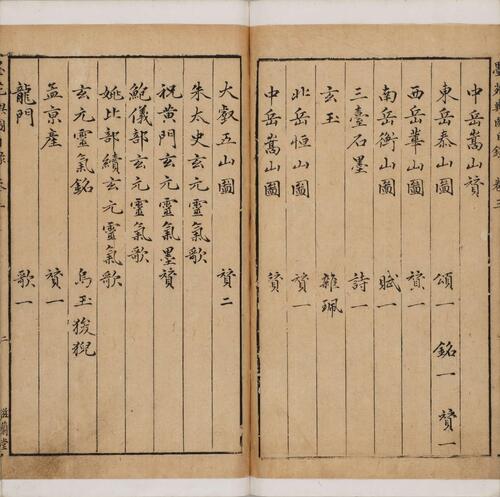 中岳嵩山贊
東岳泰山圖 頌一 銘一 贊一
西岳華山圖 贊一
南岳衡山圖 賦一
三臺石墨 詩一
玄玉 雜珮
北岳恒山圖 贊一
中岳嵩山圖 贊
大歡五山圖 贊二
朱太史玄元靈氣歌
祝黄門玄元靈氣墨贊
鮑儀部玄元靈氣歌
姚比部續玄元靈氣歌
玄元靈氣銘 烏玉狻猊
孟京産 贊一
龍門 歌一
二
滋蘭堂